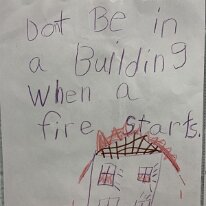 Dot Be in
a Building
when a
fire starts.